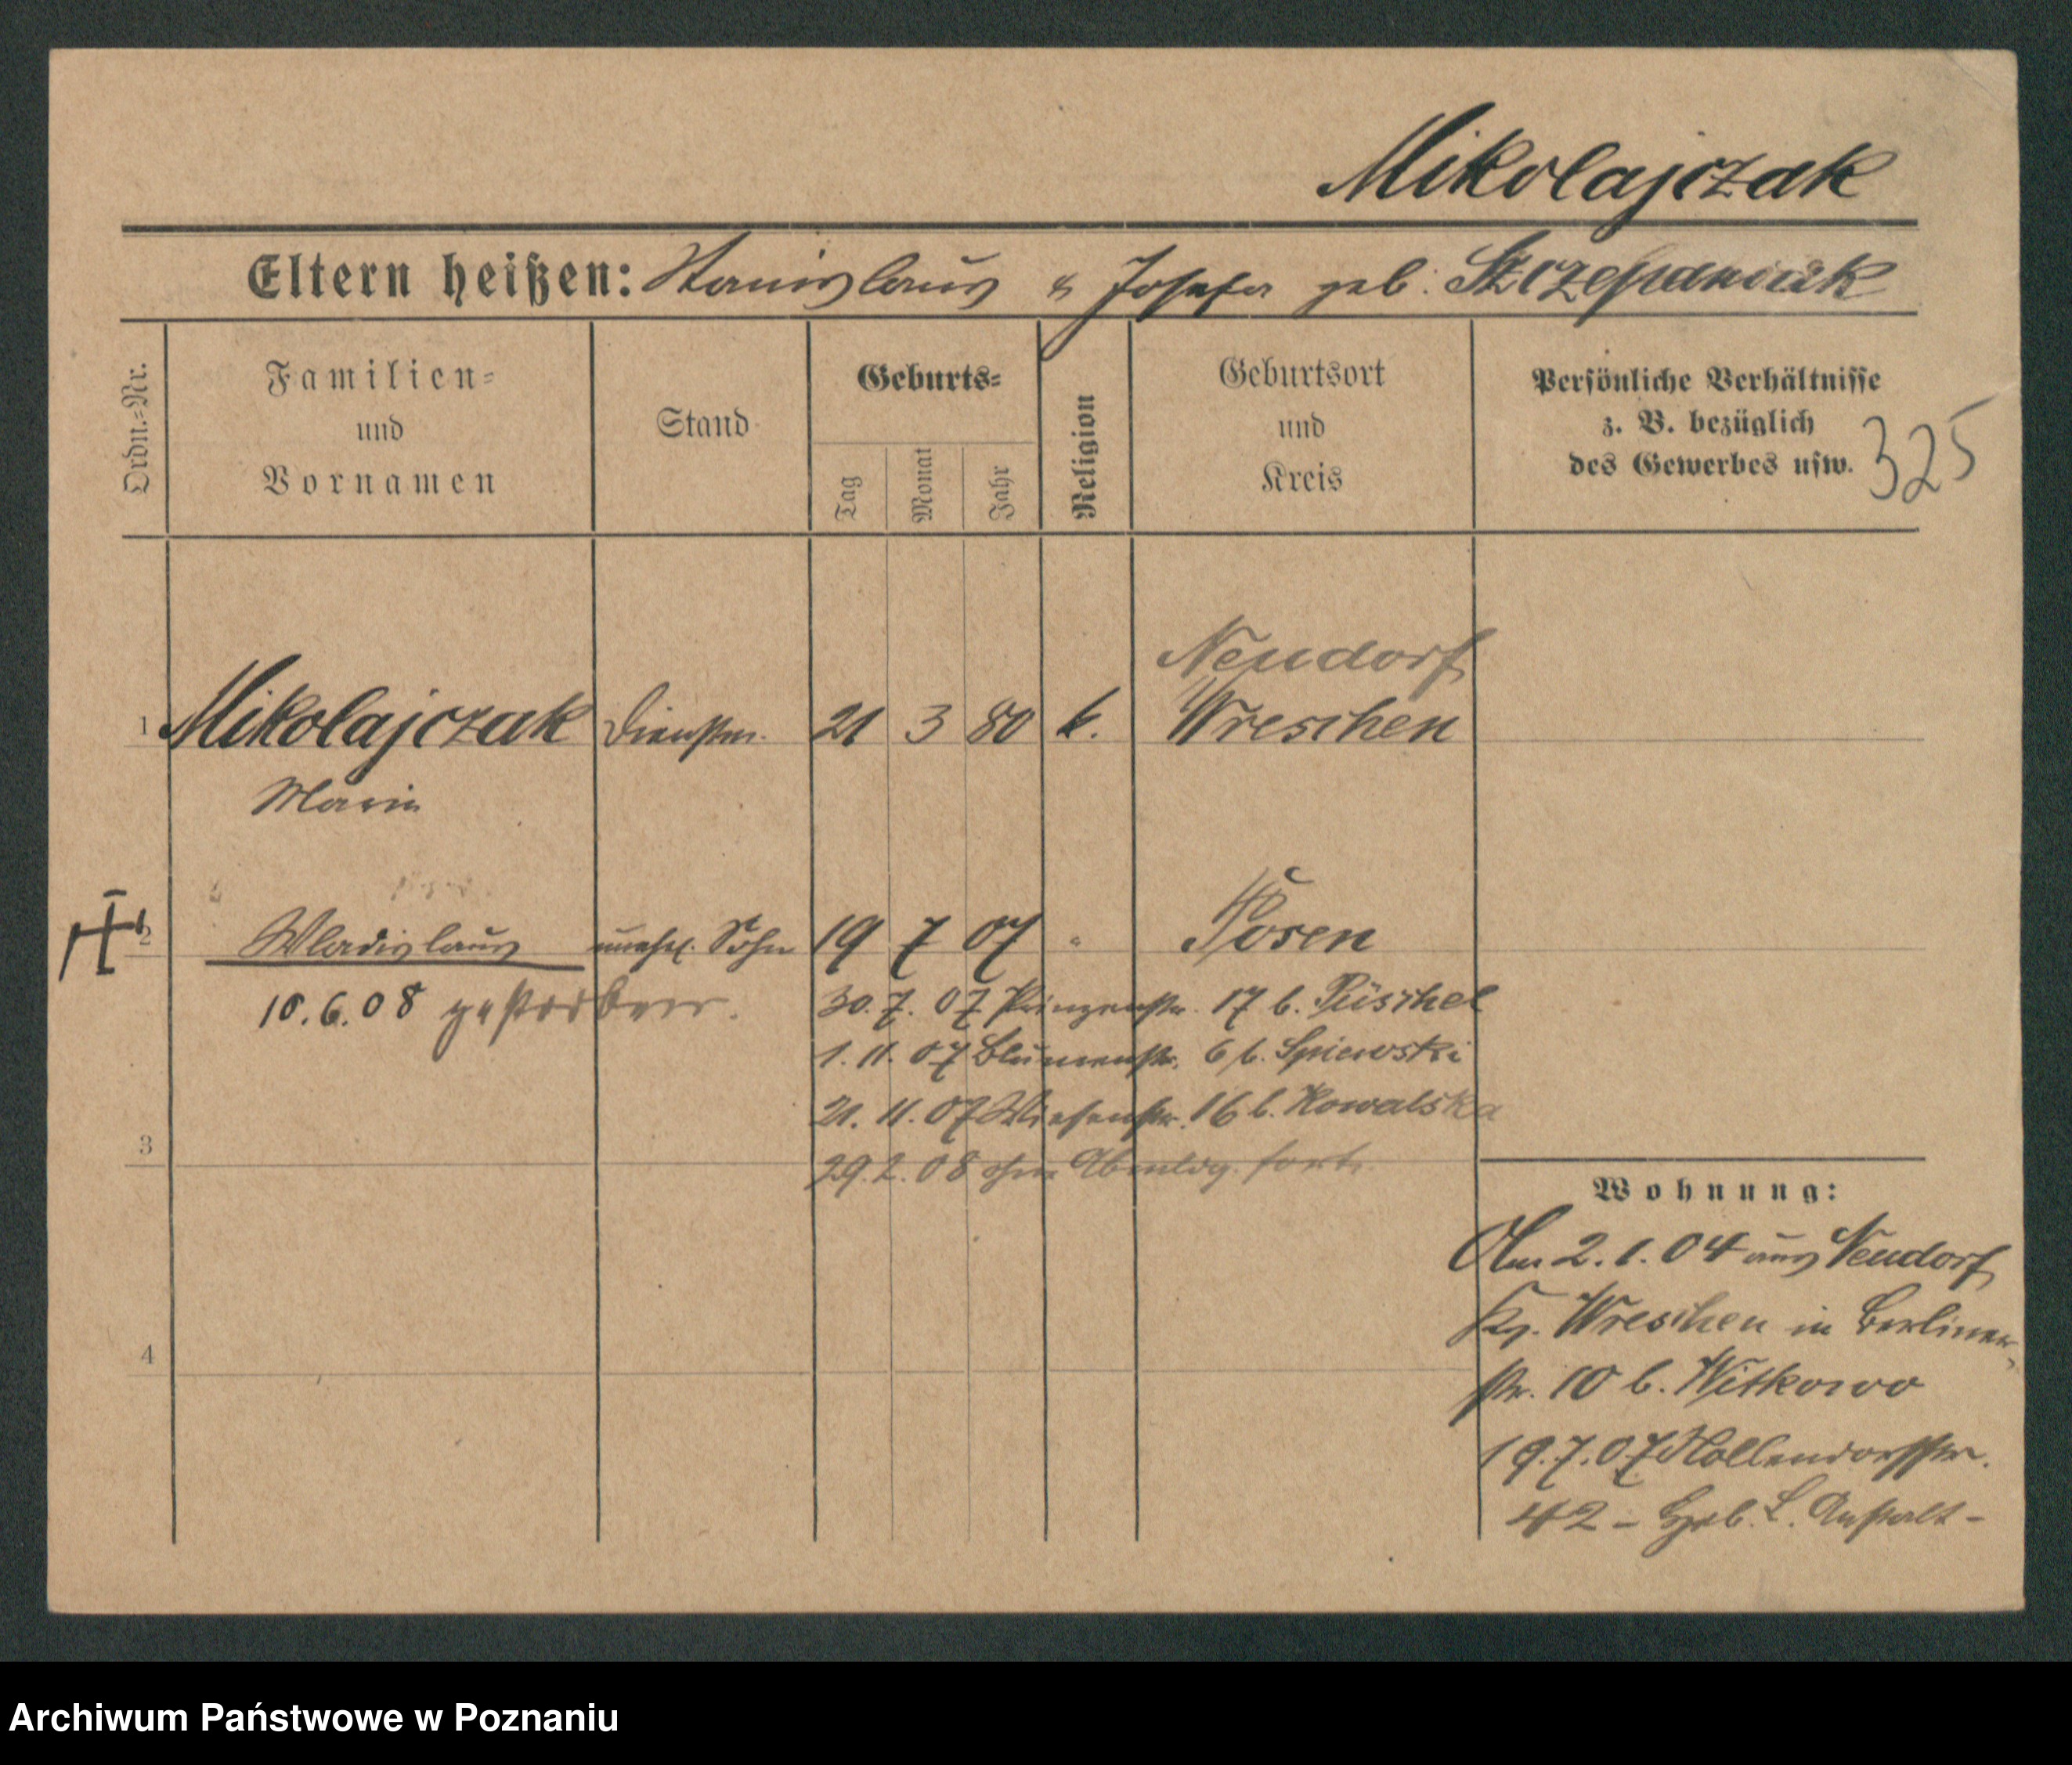 Mikolajczak
Eltern heißen: Stanislaus & Josefa geb. Szczepaniak
Ordn.=Nr.
Familien=
und
Vornamen
Stand
Geburts=
Tag
Monat
Jahr
Religion
Geburtsort
und
Kreis
Persönliche Verhältnisse
z. B. bezüglich
des Gewerbes usw.
325
Neudorf
1 Mikolajczak Dienstm. 21 3 80 k. Wreschen
Marie
2 Wladislaus unehel. Sohn 19 7 07 " Posen
10.6.08 gestorben.
30.7.07 Prinzenstr. 17 b. Püschel
1.11.07 Blumenstr. 6 b. Spiewski
21.11.07 Wiesenstr. 16 b. Kowalska
3
29.2.08 ohne Abmldg. fort.
4
Wohnung:
Am 2.1.04 aus Neudorf
Kr. Wreschen in Berliner-
str. 10 b. Witkowo
19.7.07 Nollendorfstr.
42 - Geb. L. Anstalt -
Archiwum Państwowe w Poznaniu